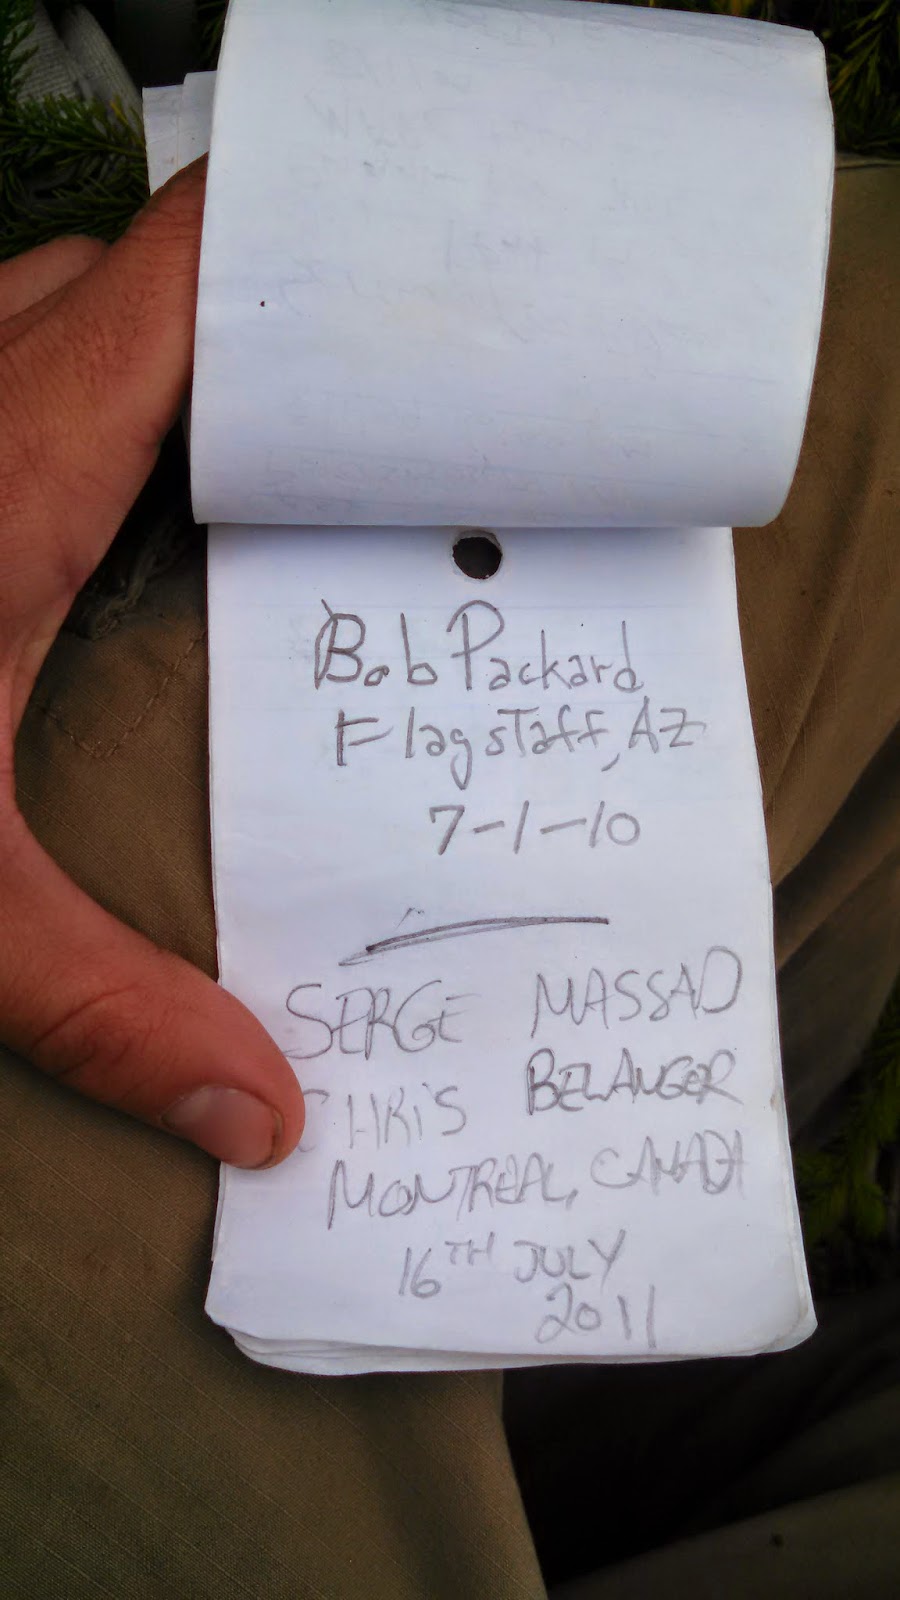 Bob Packard
Flagstaff, AZ
7-1-10
SERGE MASSAD
CHRIS BELANGER
MONTREAL, CANADA
16TH JULY
2011